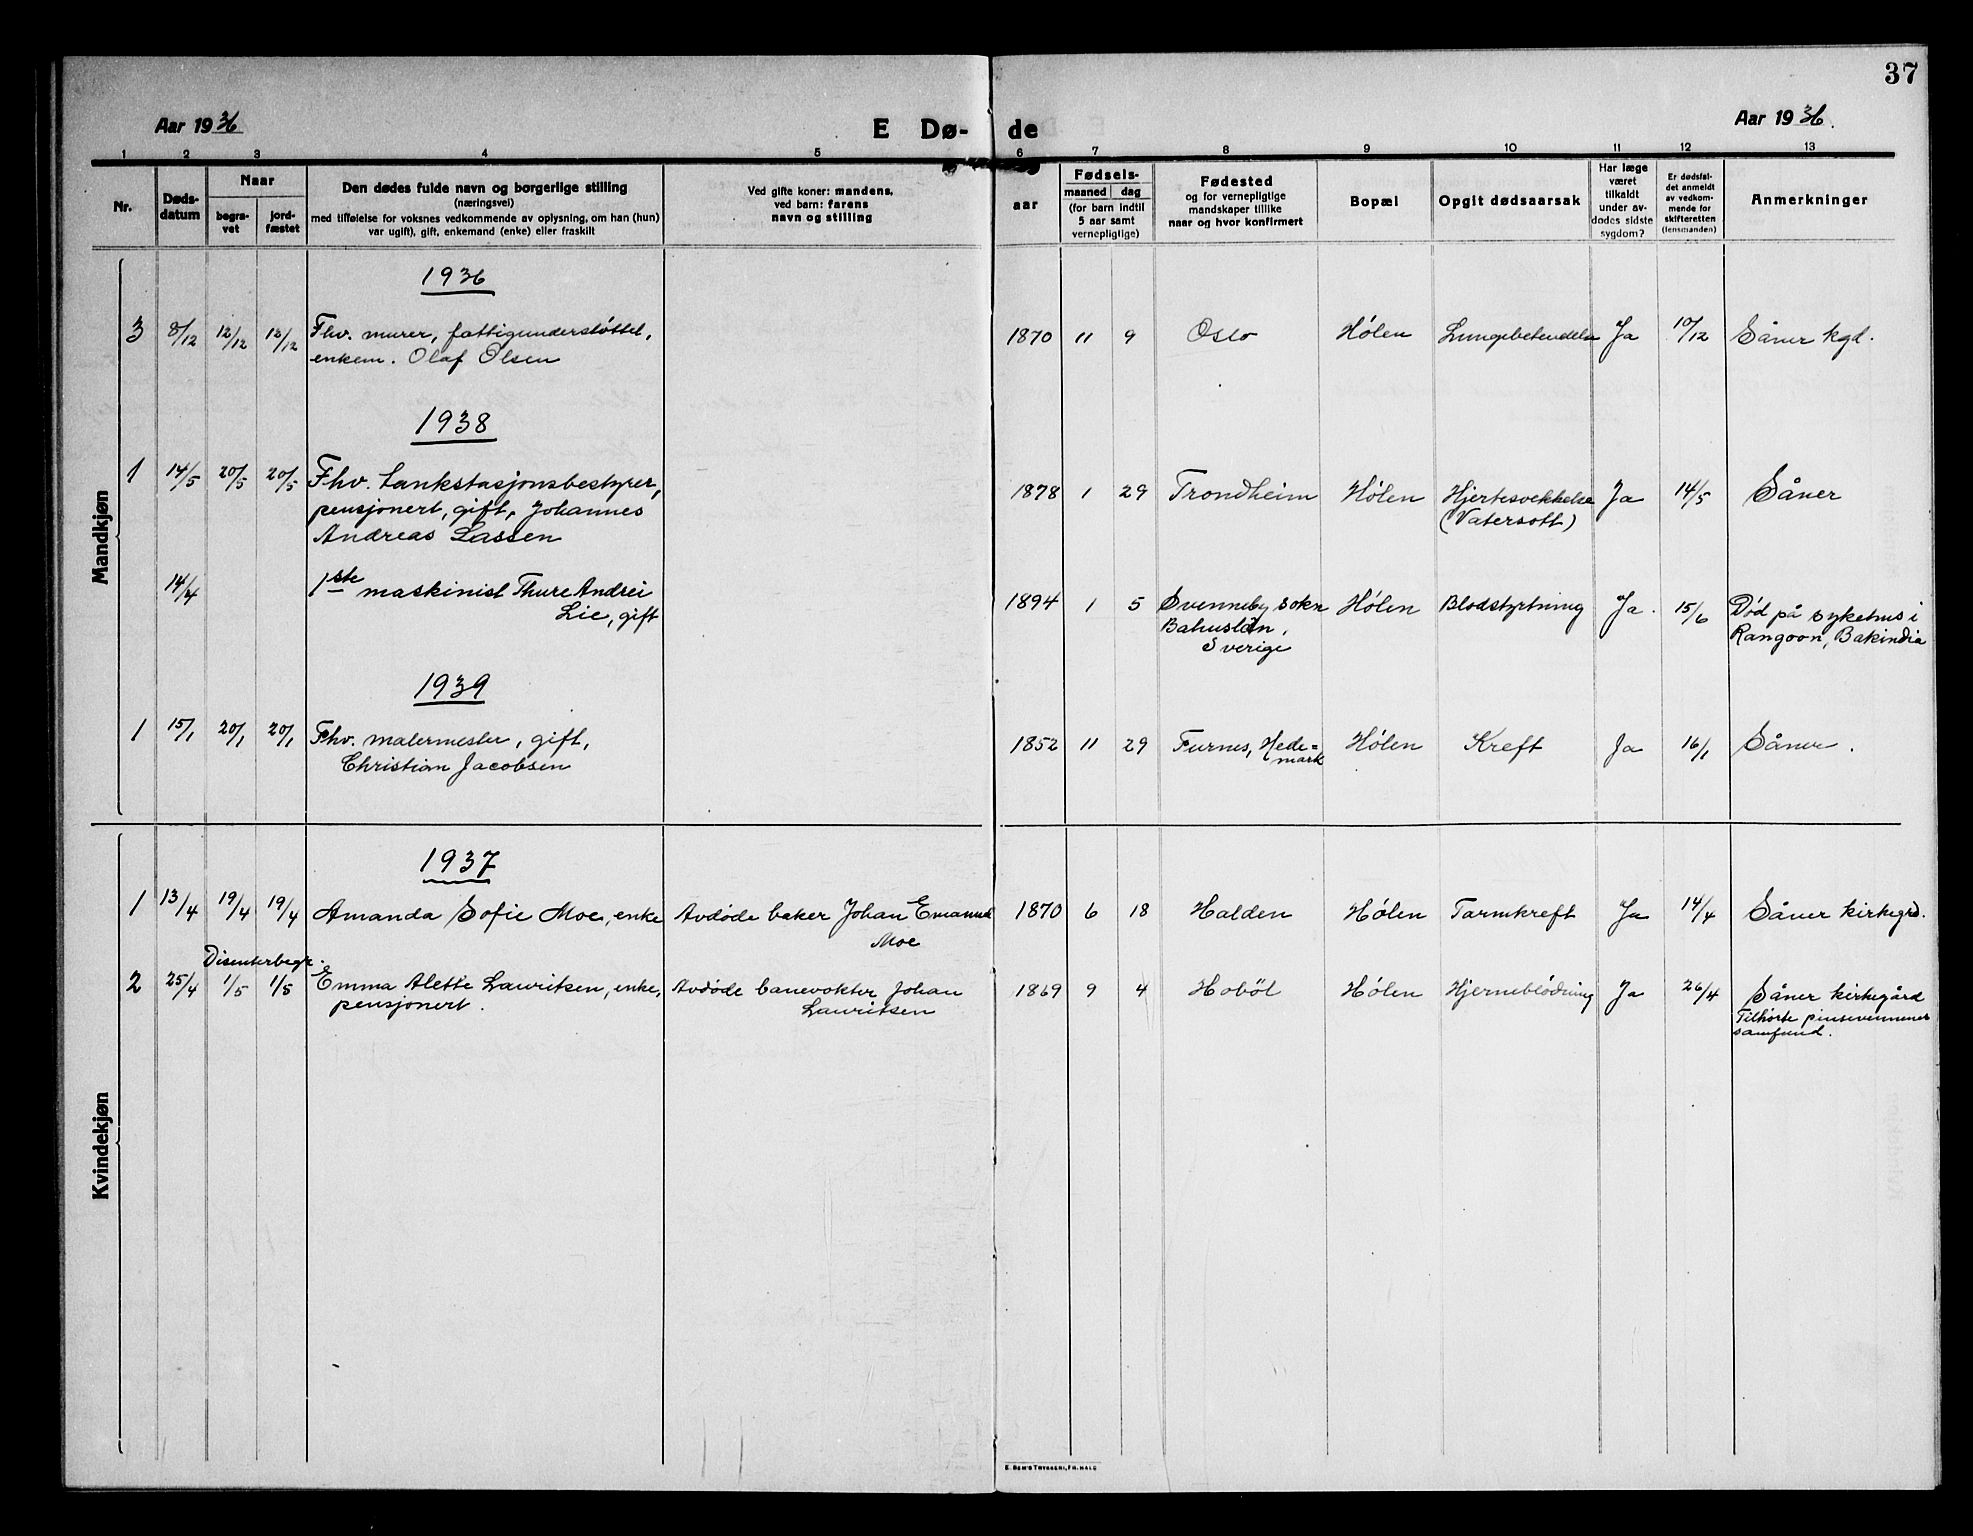 37
Aar 1936
E Dø- de
Aar 1936.
1 2 3 4 5 6 7 8 9 10 11 12 13
Nr.
Døds-
datum
Naar
begra-
vet
jord-
fæstet
Den dødes fulde navn og borgerlige stilling
(næringsvei)
med tilføielse for voksnes vedkommende av oplysning, om han (hun)
var ugift), gift, enkemand (enke) eller fraskilt
Ved gifte koner: mandens,
ved barn: farens
navn og stilling
Fødsels-
aar
maaned dag
(for barn indtil
5 aar samt
vernepligtige)
Fødested
og for vernepligtige
mandskaper tillike
naar og hvor konfirmert
Bopæl
Opgit dødsaarsak
Har læge
været
tilkaldt
under av-
dødes sidste
sygdom?
Er dødsfal-
det anmeldt
av vedkom-
mende for
skifteretten
(lensmanden)
Anmerkninger
Mandkjøn
1936
3 8/12 12/12 12/12 Fhv. murer, fattigunderstøttet, 1870 11 9 Oslo Hølen Lungebetendelse Ja 10/12 Såner kgd.
enkem. Olaf Olsen
1938
1 14/5 20/5 20/5 Fhv. tankstasjonsbestyrer, 1878 1 29 Trondheim Hølen Hjertesvekkelse Ja 14/5 Såner
pensjonert, gift, Johannes (Vatersott)
Andreas Lassen
14/4 1ste maskinist Thure Andrei 1894 1 5 Svenneby sokn Hølen Blodstyrtning Ja. 15/6 Død på sykehus i
Lie, gift Bahuslän, Rangoon, Bakindia
Sverige
1939
1 15/1 20/1 20/1 Fhv. malermester, gift, 1852 11 29 Furnes, Hede= Hølen Kreft Ja 16/1 Såner.
Christian Jacobsen mark
Kvindekjøn
1937
1 13/4 19/4 19/4 Amanda Sofie Moe, enke Avdøde baker Johan Emanuel 1870 6 18 Halden Hølen Tarmkreft Ja 14/4 Såner kirkegrd.
Moe
Disenterbegr.
2 25/4 1/5 1/5 Emma Alette Lauritsen, enke, Avdøde banevokter Johan 1869 9 4 Hobøl Hølen Hjerneblødning Ja 26/4 Såner kirkegård
pensjonert. Lauritsen Tilhørte pinsevennenes
samfund.
E. SEM'S TRYKKERI, FR.HALD